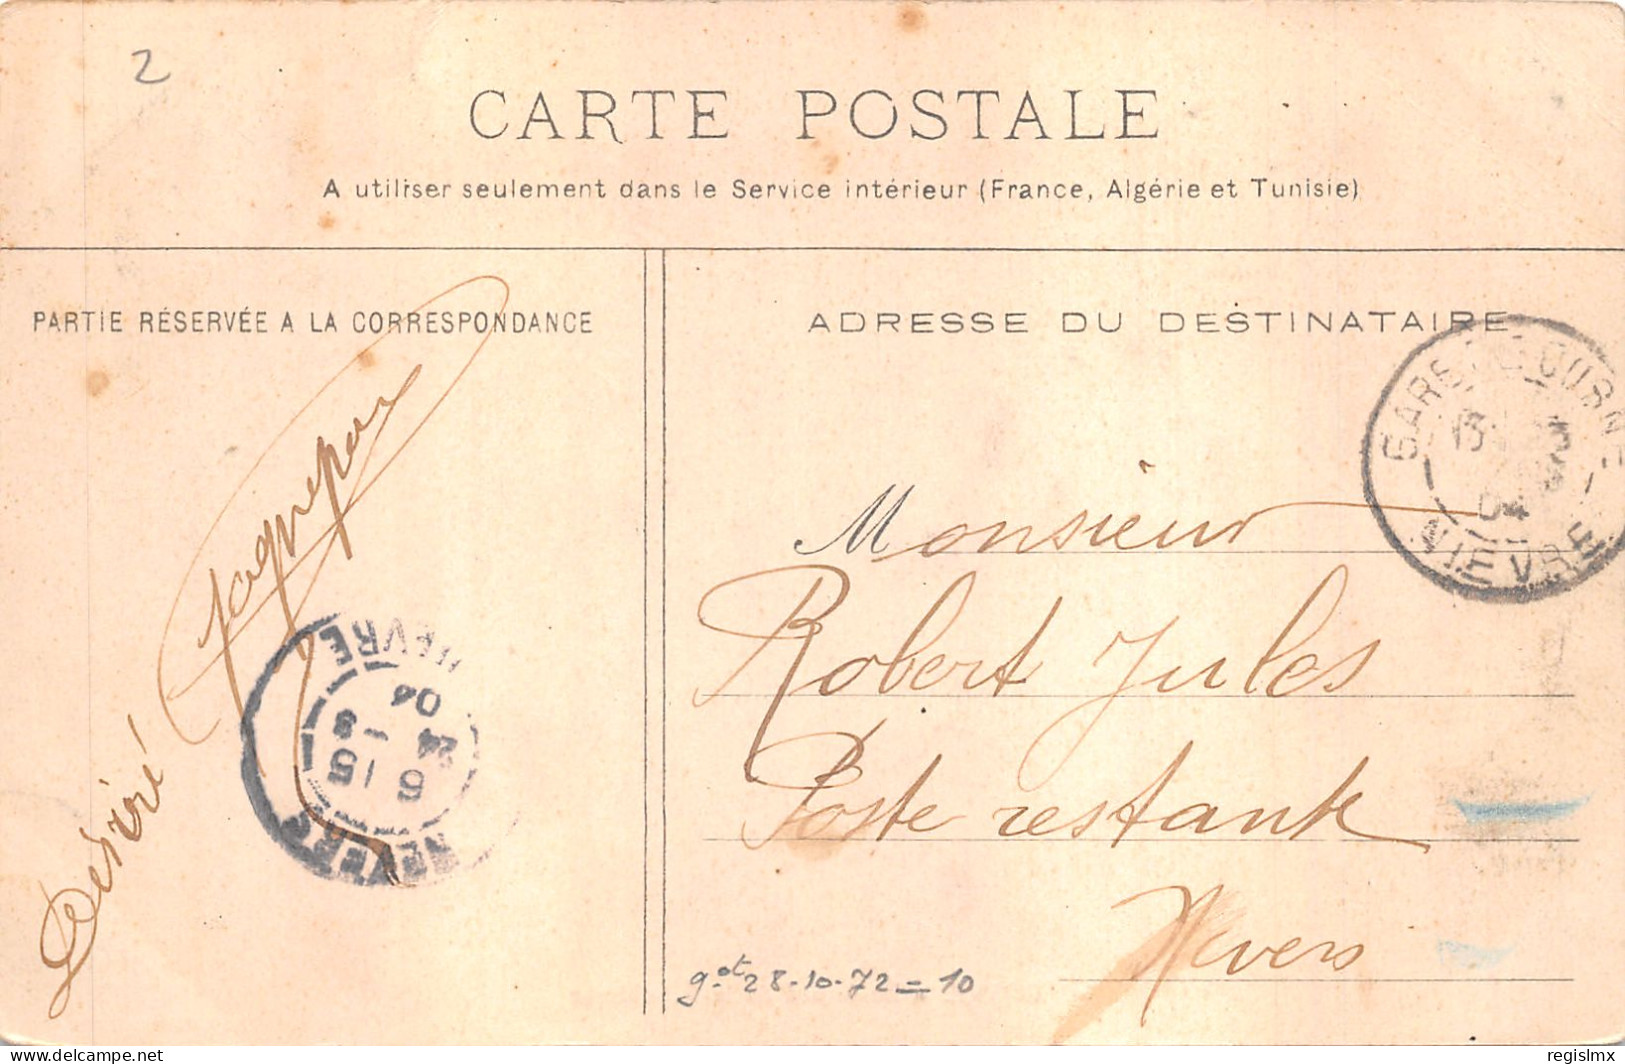 2
CARTE POSTALE
A utiliser seulement dans le Service intérieur (France, Algérie et Tunisie)
PARTIE RÉSERVÉE A LA CORRESPONDANCE
Désiré
ADRESSE DU DESTINATAIRE
04
NIEVRE
Monsieur
Robert Jules
Poste restante
Nevers
NEVERS
6 15
24 - 8
04
NIEVRE
g.ot 28-10-72 = 10
delcampe.net
regislmx